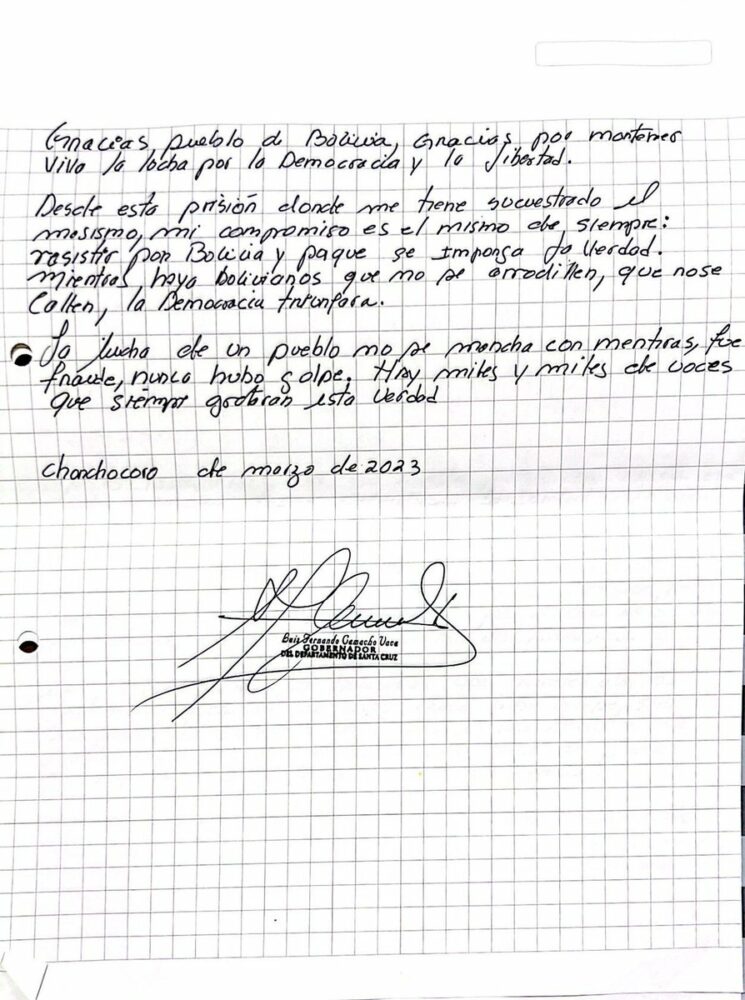 Gracias, pueblo de Bolivia, Gracias por mantener
viva la lucha por la Democracia y la libertad.
Desde esta prisión donde me tiene secuestrado el
masismo, mi compromiso es el mismo de siempre:
resistir por Bolivia y paque se imponga la Verdad.
Mientras haya bolivianos que no se arrodillen, que nose
Callen, la Democracia triunfara.
La lucha de un pueblo no se mancha con mentiras, fue
fraude, nunca hubo golpe. Hay miles y miles de voces
que siempre gritaran esta Verdad
Chonchocoro de marzo de 2023
Luis Fernando Camacho Vaca
GOBERNADOR
DEL DEPARTAMENTO DE SANTA CRUZ